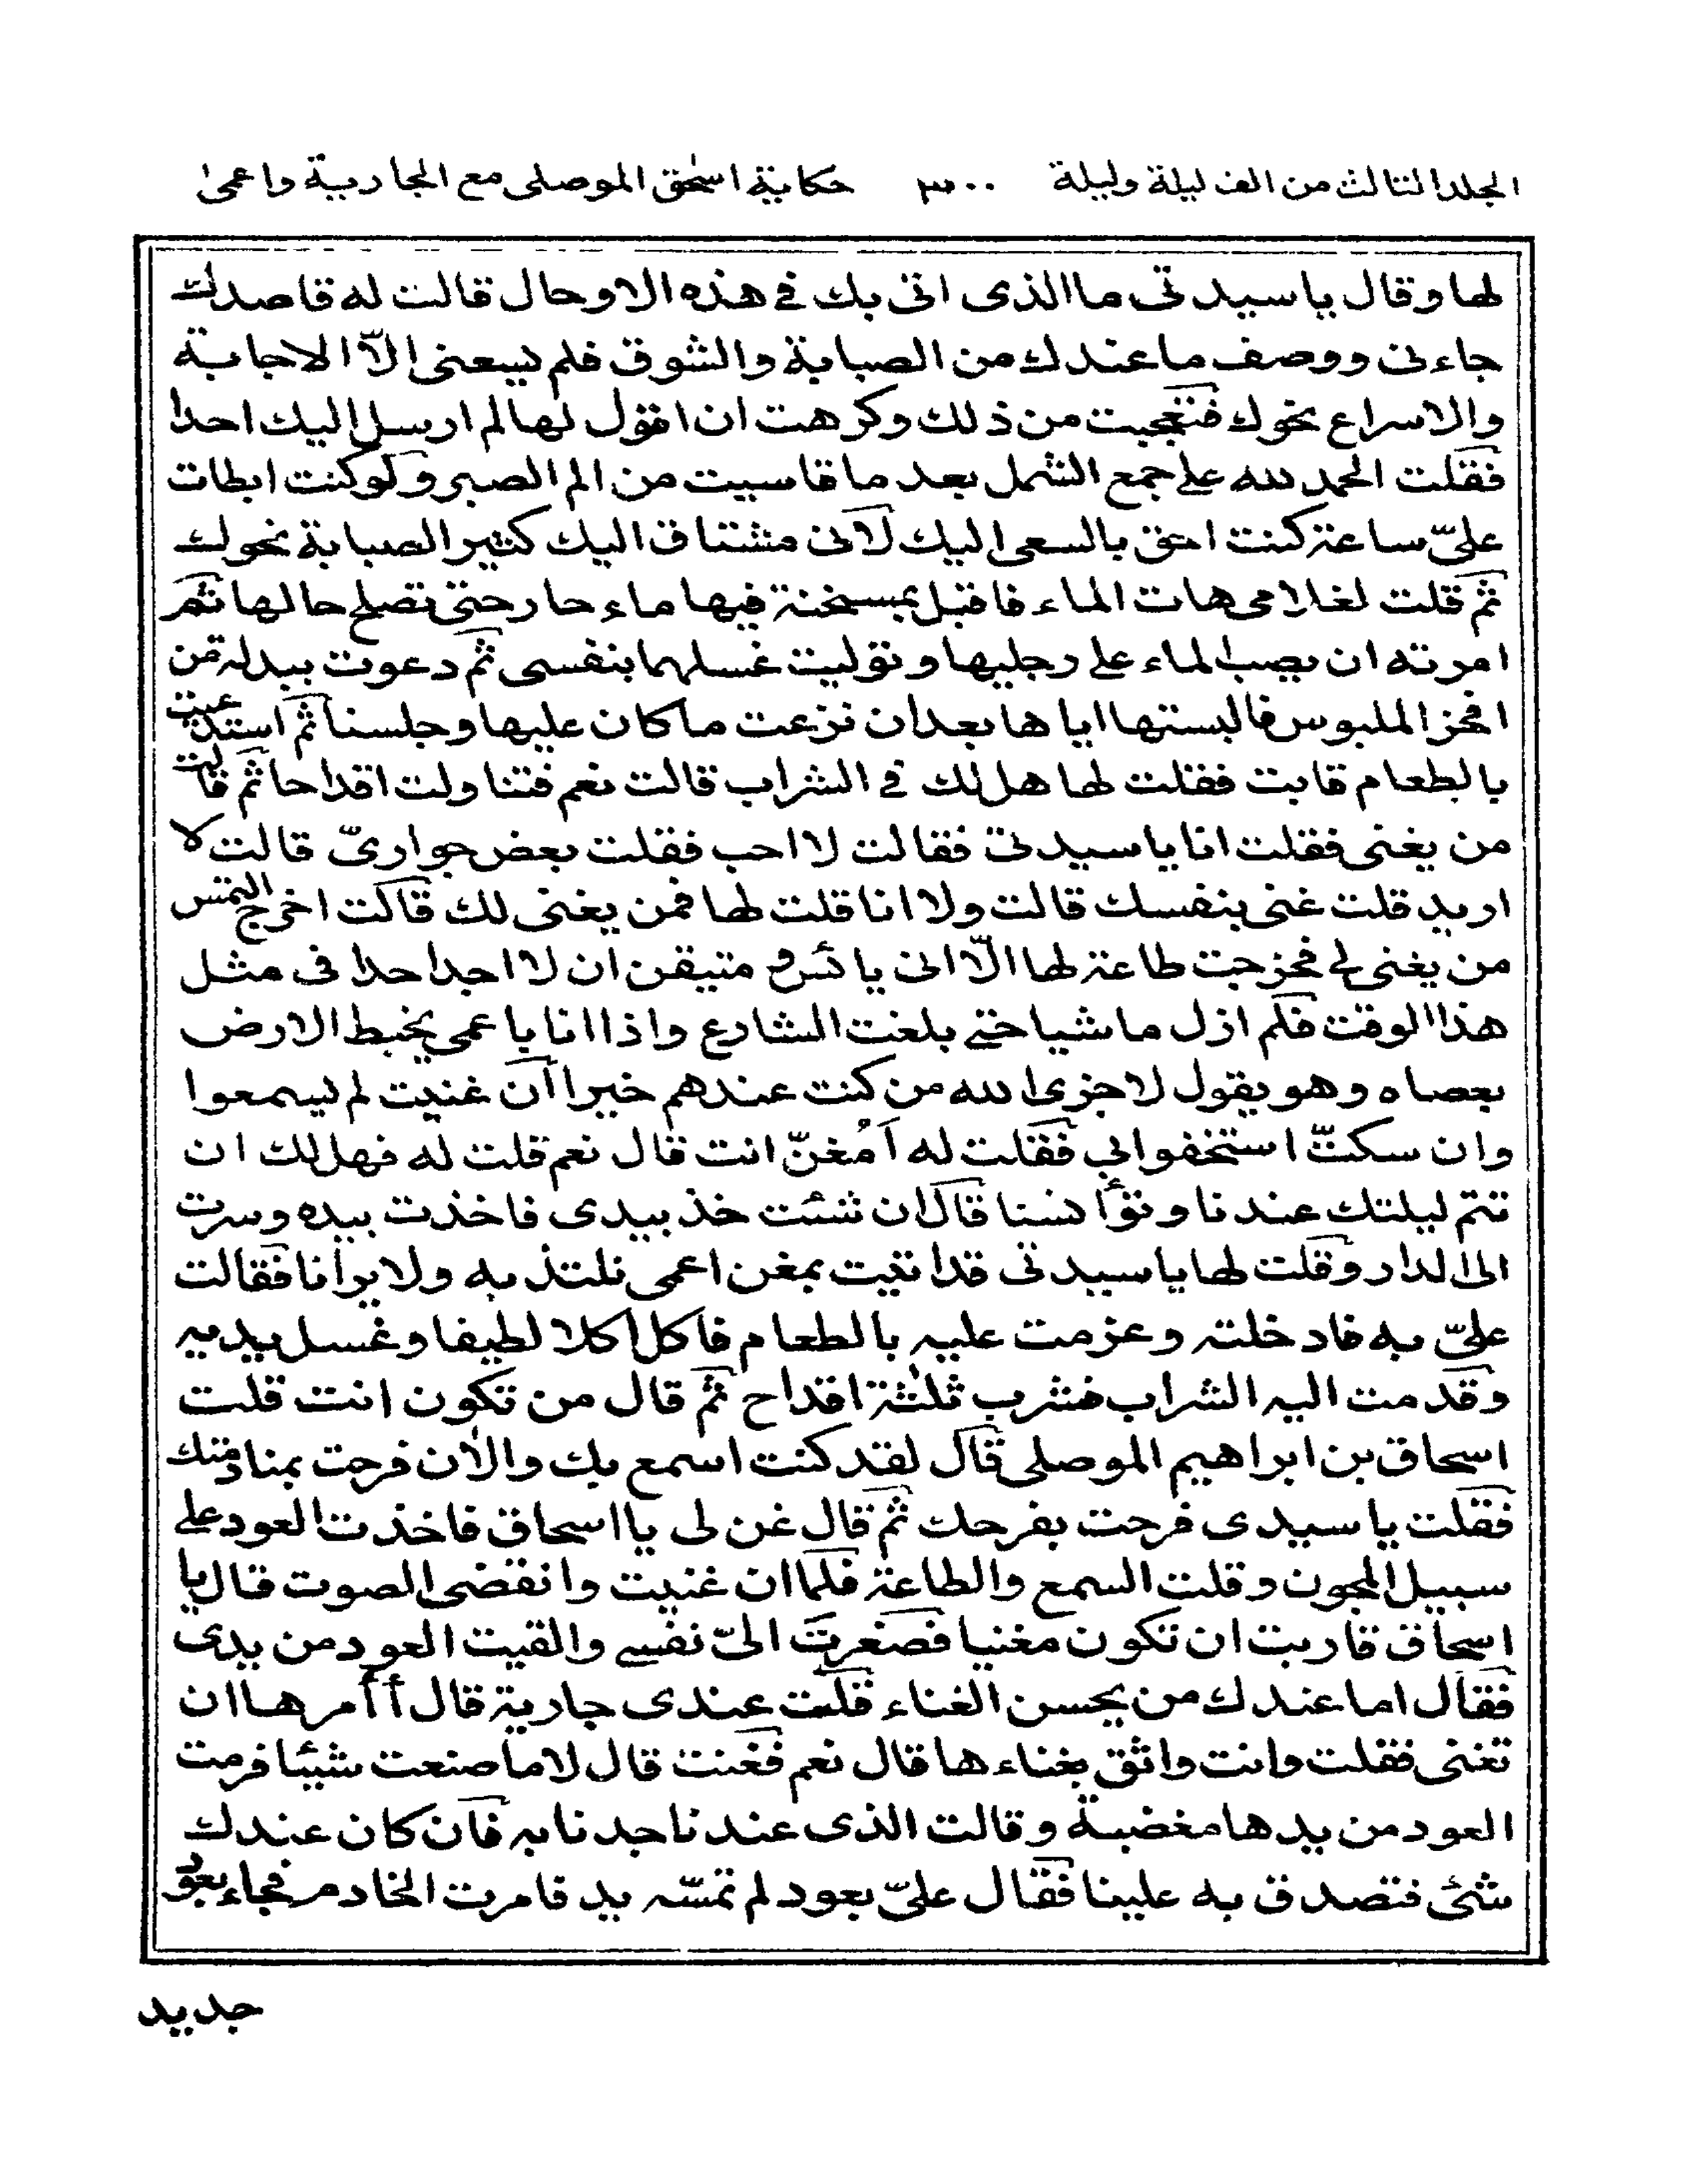 المجلد الثالث من الف ليلة وليلة ٣٠٠ حكاية اسحٰق الموصلى مع الجارية واعمىٰ
لها وقال ياسيدتى ما الذى اتى بك فى هذه الاوحال قالت له قاصدك
جاءنى ووصف ما عندك من الصبابة والشوق فلم يسعنى الّا الاجابة
والاسراع نحوك فتعجبت من ذلك وكرهت ان اقول لها لم ارسل اليك احدا
فقلت الحمد لله على جمع الشمل بعد ما قاسيت من الم الصبر ولو كنت ابطات
علىّ ساعة كنت احق بالسعى اليك لانى مشتاق اليك كثير الصبابة نحوك
ثم قلت لغلامى هات الماء فاقبل بمسخنة فيها ماء حار حتى تصلح حالها ثم
امرته ان يصب الماء على رجليها وتوليت غسلهما بنفسى ثم دعوت ببدلة من
افخر الملبوس فالبستها اياها بعد ان نزعت ما كان عليها وجلسنا ثم استدعيت
بالطعام فابت فقلت لها هل لك فى الشراب قالت نعم فتناولت اقداحا ثم قالت
من يغنى فقلت انا ياسيدتى فقالت لا احب فقلت بعض جوارىّ قالت لا
اريد قلت غنى بنفسك قالت ولا انا قلت لها فمن يغنى لك قالت اخرج التمس
من يغنى لى فخرجت طاعة لها الّا انى يائس و متيقن ان لا اجد احدا فى مثل
هذا الوقت فلم ازل ماشيا حتى بلغت الشارع واذا انا باعمى يخبط الارض
بعصاه وهو يقول لا جزى الله من كنت عندهم خيرا ان غنيت لم يسمعوا
وان سكتّ استخفوا بى فقلت له اَمُغنّ انت قال نعم قلت له فهل لك ان
تتم ليلتك عندنا وتؤانسنا قال ان شئت خذ بيدى فاخذت بيده وسرت
الى الدار وقلت لها ياسيدتى قد اتيت بمغن اعمى نلتذ به ولا يرانا فقالت
علىّ به فادخلته وعزمت عليه بالطعام فاكل اكلا لطيفا وغسل يديه
وقدمت اليه الشراب فشرب ثلٰثة اقداح ثم قال من تكون انت قلت
اسحاق بن ابراهيم الموصلى قال لقد كنت اسمع بك والاٰن فرحت بمنادمتك
فقلت ياسيدى فرحت بفرحك ثم قال غن لى يا اسحاق فاخذت العود على
سبيل المجون وقلت السمع والطاعة فلما ان غنيت وانقضى الصوت قال يا
اسحاق قاربت ان تكون مغنيا فصغرت الىّ نفسى والقيت العود من يدى
فقال اما عندك من يحسن الغناء قلت عندى جارية قال أأمرها ان
تغنى فقلت وانت واثق بغناءها قال نعم فغنت قال لا ما صنعت شيئا فرمت
العود من يدها مغضبة وقالت الذى عندنا جدنا به فان كان عندك
شئ فتصدق به علينا فقال علىّ بعود لم تمسّه يد فامرت الخادم فجاء بعود
جديد